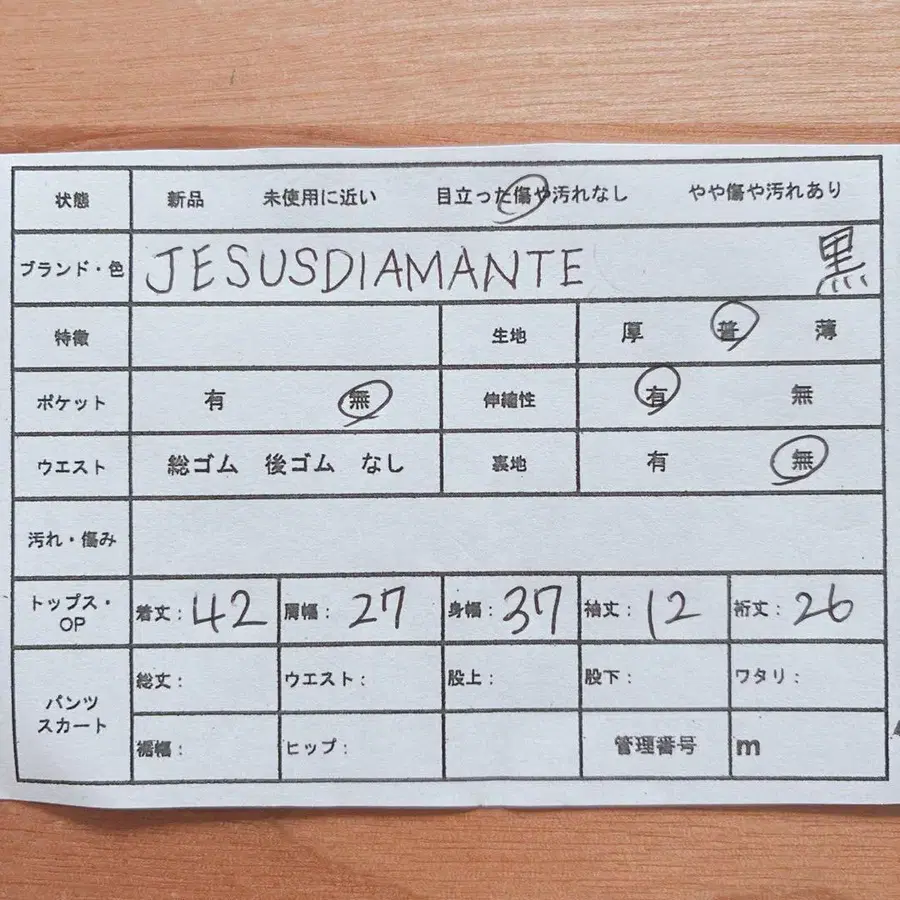 状態 新品 未使用に近い 目立った傷や汚れなし やや傷や汚れあり
ブランド・色 JESUSDIAMANTE 黒
特徴 生地 厚 普 薄
ポケット 有 無 伸縮性 有 無
ウエスト 総ゴム 後ゴム なし 裏地 有 無
汚れ・傷み
トップス・OP 着丈: 42 肩幅: 27 身幅: 37 袖丈: 12 裄丈: 26
パンツ スカート 総丈: ウエスト: 股上: 股下: ワタリ:
裾幅: ヒップ: 管理番号 m